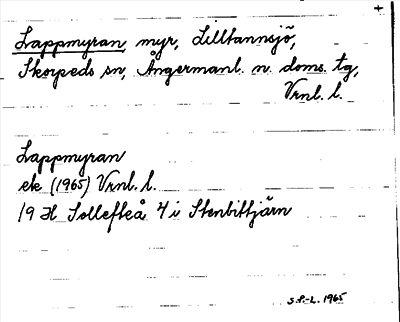 +
Lappmyran myr, Lilltannsjö,
Skorpeds sn, Ångermanl. n. doms. tg,
Vrnl. l.
Lappmyran
ek (1965) Vrnl. l.
19 H Sollefteå 4 i Stenbittjärn
S.P-L. 1965